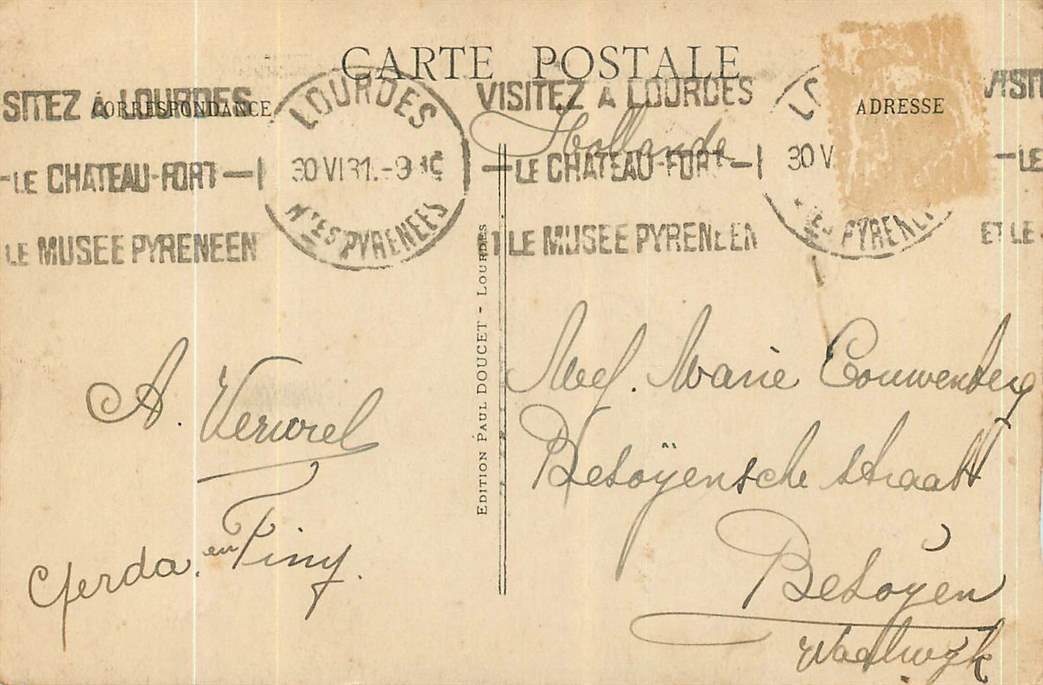 CARTE POSTALE
CORRESPONDANCE
ADRESSE
SITEZ A LOURDES
-LE CHATEAU-FORT-
LE MUSEE PYRENEEN
LOURDES
30 VI 31.-9
HTES PYRENEES
VISITEZ A LOURDES
-LE CHATEAU-FORT-
ET LE MUSEE PYRENEEN
LO
30 V
TES PYRENE
VISIT
-LE
ET LE
Hollande
EDITION PAUL DOUCET - LOURDES
A. Verwiel
Gerda. en Tiny.
Mej. Marie Couwenberg
Besoÿensche straat
Besoÿen
Waalwijk